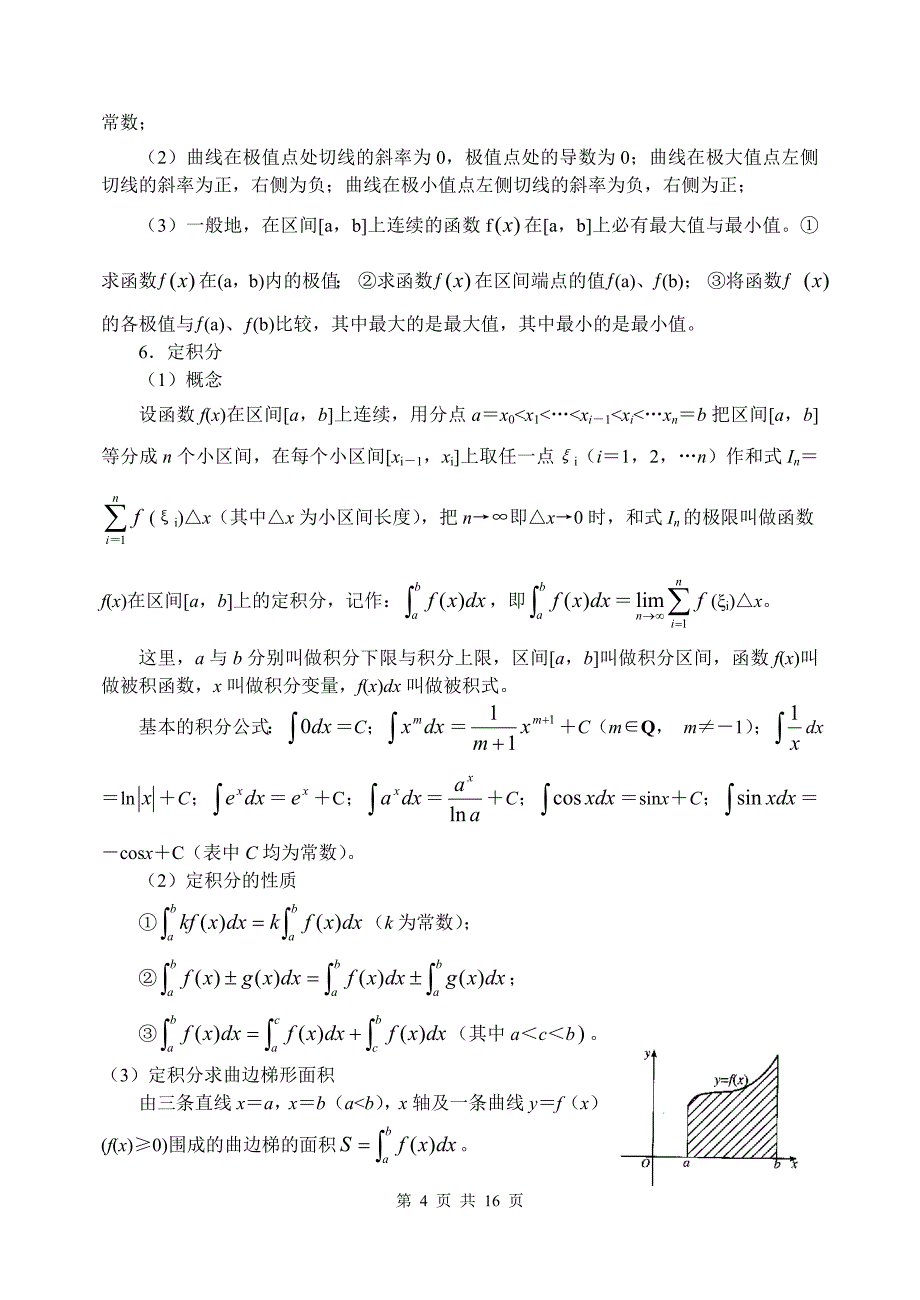 常数；
（2）曲线在极值点处切线的斜率为 0，极值点处的导数为 0；曲线在极大值点左侧
切线的斜率为正，右侧为负；曲线在极小值点左侧切线的斜率为负，右侧为正；
（3）一般地，在区间[a，b]上连续的函数 f(x)在[a，b]上必有最大值与最小值。①
求函数 f(x)在(a，b)内的极值； ②求函数 f(x)在区间端点的值 f(a)、f(b)； ③将函数 f (x)
的各极值与 f(a)、f(b)比较，其中最大的是最大值，其中最小的是最小值。
6．定积分
（1）概念
设函数 f(x)在区间[a，b]上连续，用分点 a＝x₀<x₁<…<xᵢ₋₁<xᵢ<…xₙ＝b 把区间[a，b]
等分成 n 个小区间，在每个小区间[xᵢ₋₁，xᵢ]上取任一点ξᵢ（i＝1，2，…n）作和式 Iₙ＝
$\sum_{i=1}^{n} f$ (ξᵢ)△x（其中△x 为小区间长度），把 n→∞即△x→0 时，和式 Iₙ的极限叫做函数
f(x)在区间[a，b]上的定积分，记作：$\int_a^b f(x)dx$，即$\int_a^b f(x)dx$＝$\lim_{n\to\infty}\sum_{i=1}^{n} f$ (ξᵢ)△x。
这里，a 与 b 分别叫做积分下限与积分上限，区间[a，b]叫做积分区间，函数 f(x)叫
做被积函数，x 叫做积分变量，f(x)dx 叫做被积式。
基本的积分公式：$\int 0dx$＝C；$\int x^m dx$＝$\frac{1}{m+1}x^{m+1}$＋C（m∈Q， m≠－1）；$\int \frac{1}{x}$dx
＝ln$|x|$＋C；$\int e^x dx$＝$e^x$＋C；$\int a^x dx$＝$\frac{a^x}{\ln a}$＋C；$\int \cos xdx$＝sinx＋C；$\int \sin xdx$＝
－cosx＋C（表中 C 均为常数）。
（2）定积分的性质
①$\int_a^b kf(x)dx = k\int_a^b f(x)dx$（k 为常数）；
②$\int_a^b f(x) \pm g(x)dx = \int_a^b f(x)dx \pm \int_a^b g(x)dx$；
③$\int_a^b f(x)dx = \int_a^c f(x)dx + \int_c^b f(x)dx$（其中 a＜c＜b）。
（3）定积分求曲边梯形面积
由三条直线 x＝a，x＝b（a<b），x 轴及一条曲线 y＝f（x）
(f(x)≥0)围成的曲边梯的面积$S = \int_a^b f(x)dx$。
y
y=f(x)
O a b x
第 4 页 共 16 页